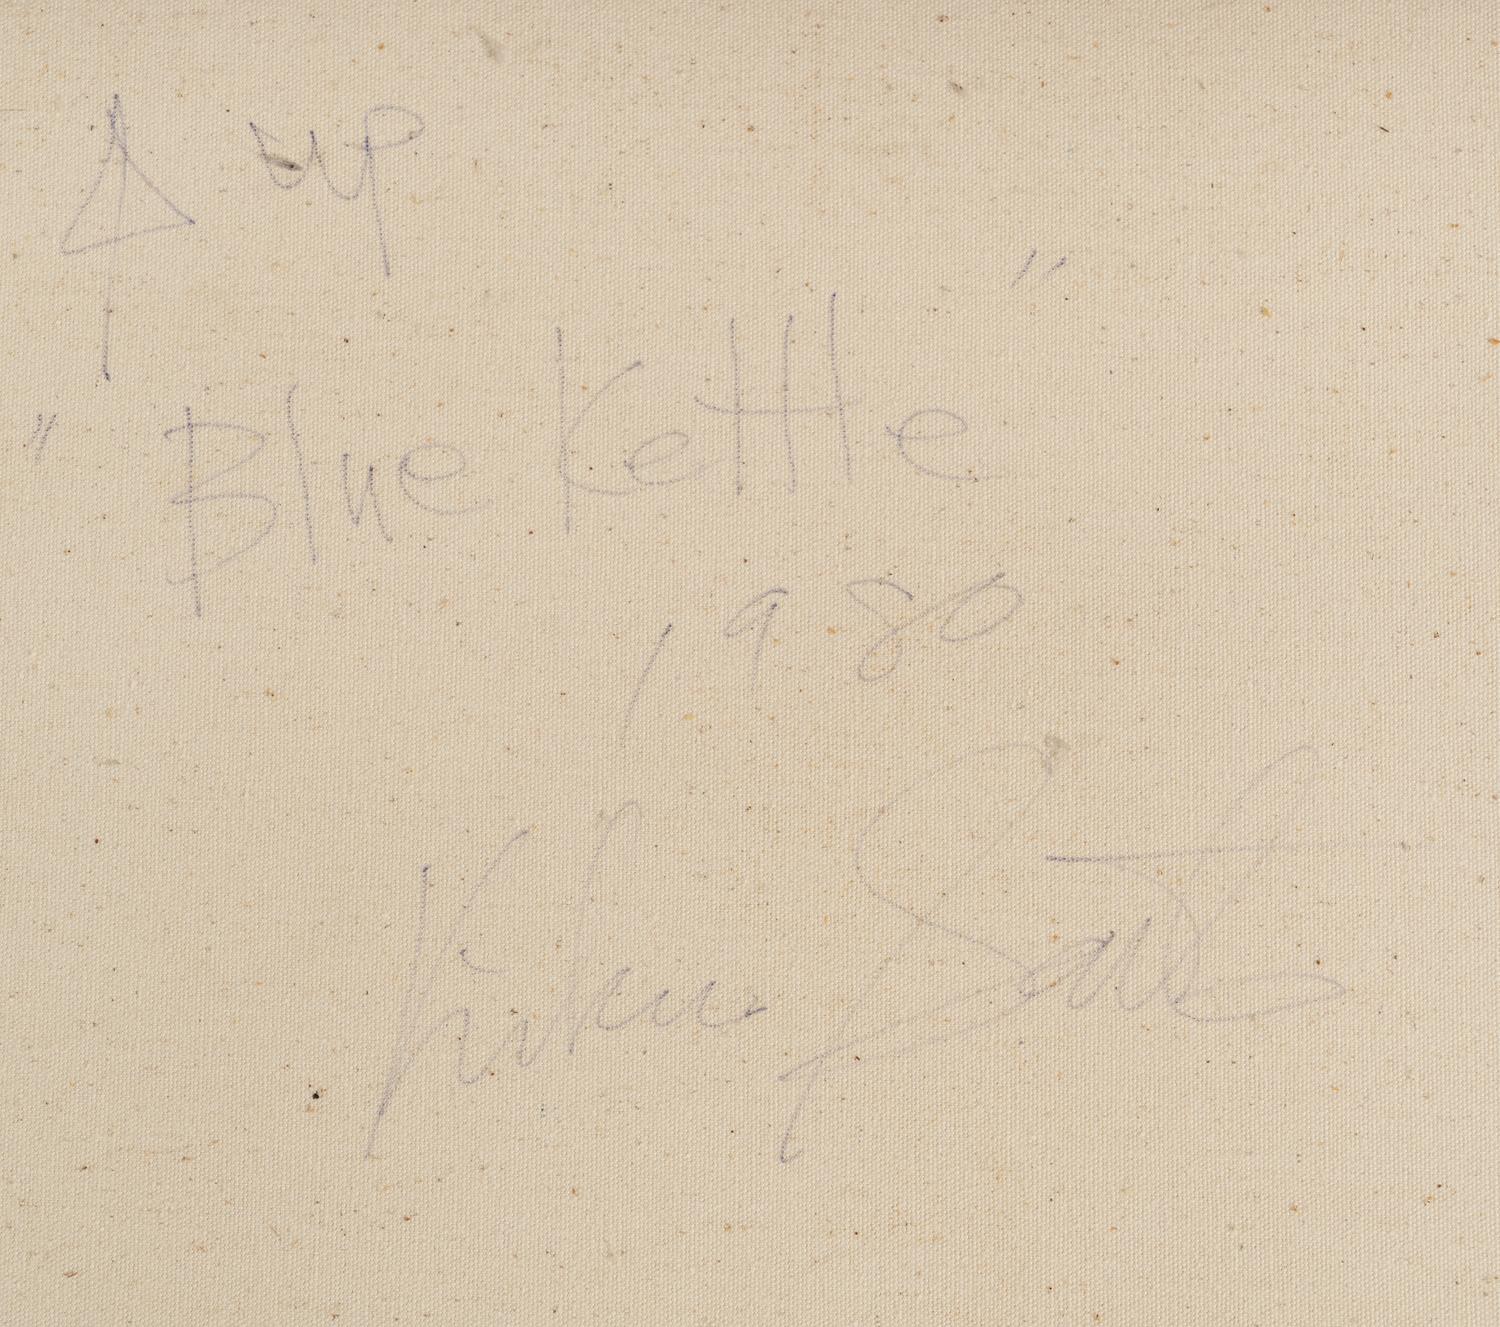 ↑ up
"Blue Kettle"
1980